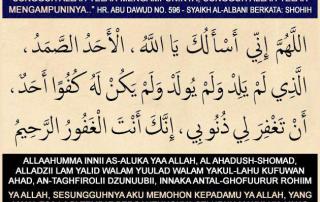 MENGAMPUNINYA.." HR. ABU DAWUD NO. 596 - SYAIKH AL-ALBANI BERKATA: SHOHIH
اللَّهُمَّ إِنِّي أَسْأَلُكَ يَا اللَّهُ، الْأَحَدُ الصَّمَدُ،
الَّذِي لَمْ يَلِدْ وَلَمْ يُولَدْ وَلَمْ يَكُنْ لَهُ كُفُوًا أَحَدٌ،
أَنْ تَغْفِرَ لِي ذُنُوبِي، إِنَّكَ أَنْتَ الْغَفُورُ الرَّحِيمُ
ALLAAHUMMA INNII AS-ALUKA YAA ALLAH, AL AHADUSH-SHOMAD,
ALLADZII LAM YALID WALAM YUULAD WALAM YAKUL-LAHU KUFUWAN
AHAD, AN-TAGHFIROLII DZUNUUBII, INNAKA ANTAL-GHOFUURUR ROHIIM
YA ALLAH, SESUNGGUHNYA AKU MEMOHON KEPADAMU YA ALLAH, YANG